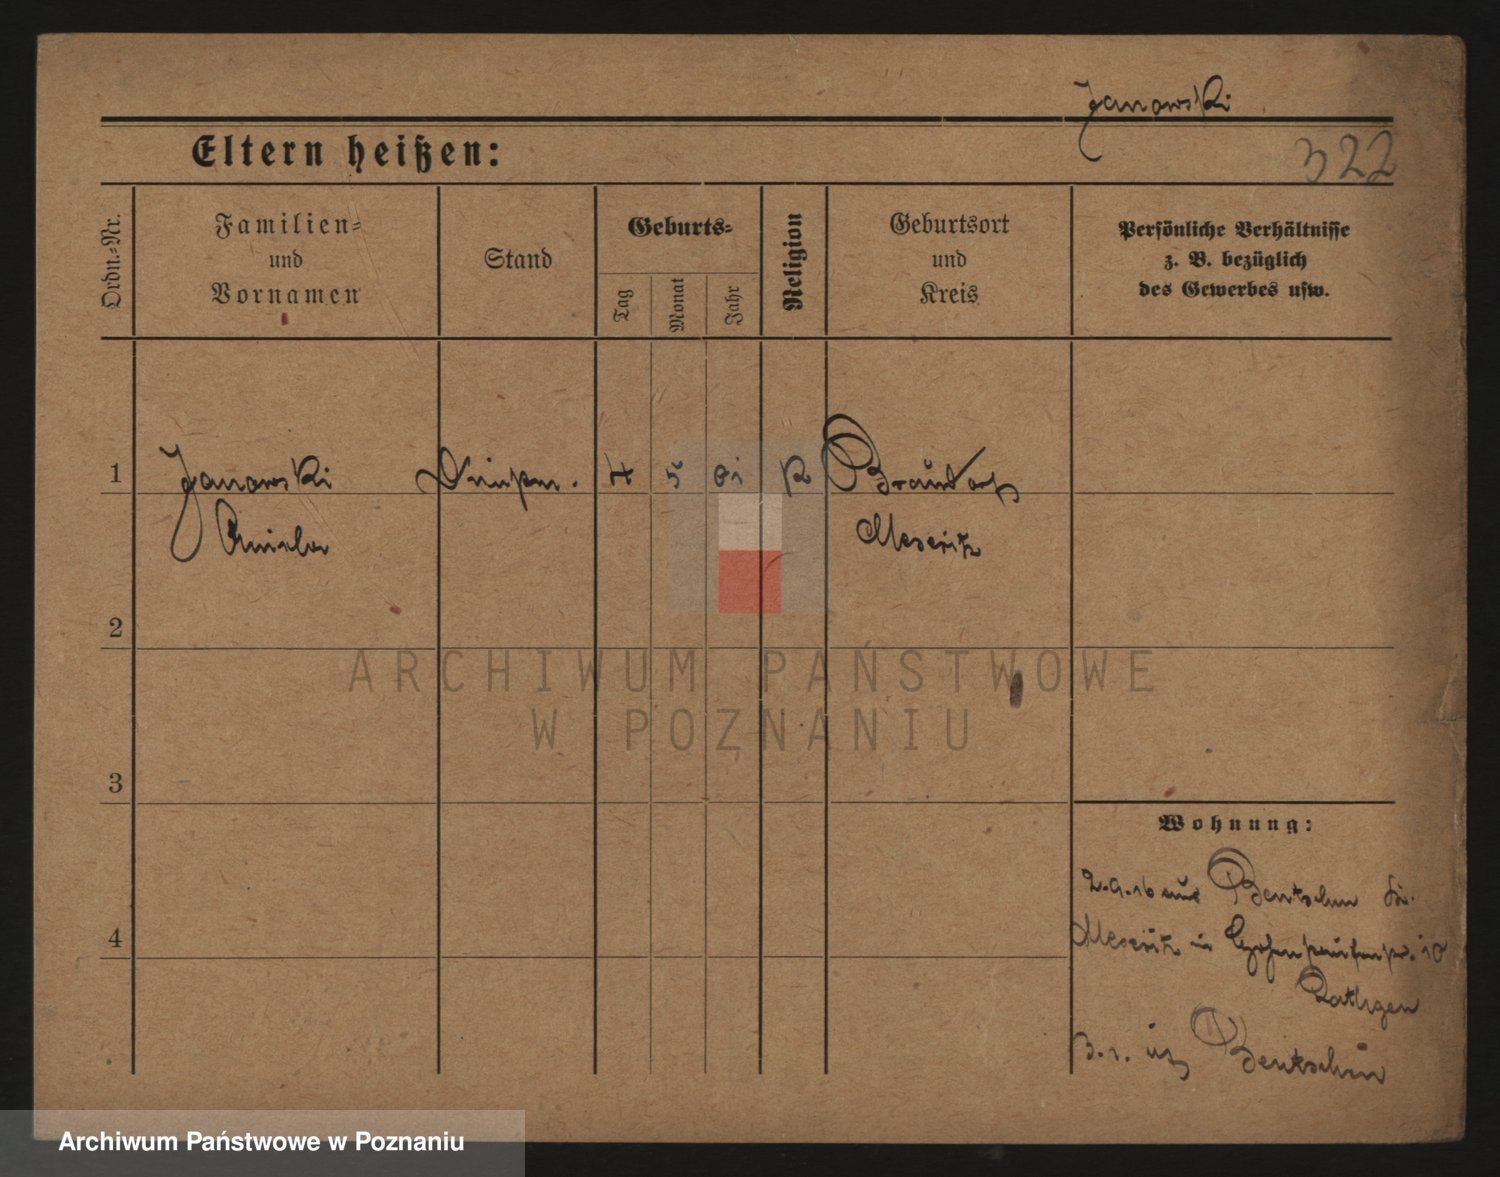 Janowski
322
Eltern heißen:
Ordn.-Nr.
Familien-
und
Vornamen
Stand
Geburts-
Tag
Monat
Jahr
Religion
Geburtsort
und
Kreis
Persönliche Verhältnisse
z. B. bezüglich
des Gewerbes usw.
1
Janowski
4 5
Brausdorf
Meseritz
2
3
4
ARCHIWUM PAŃSTWOWE
W POZNANIU
Wohnung:
2.9.16 aus Bentschen Kr.
Meseritz in
Rathgen
Bentschen
Archiwum Państwowe w Poznaniu